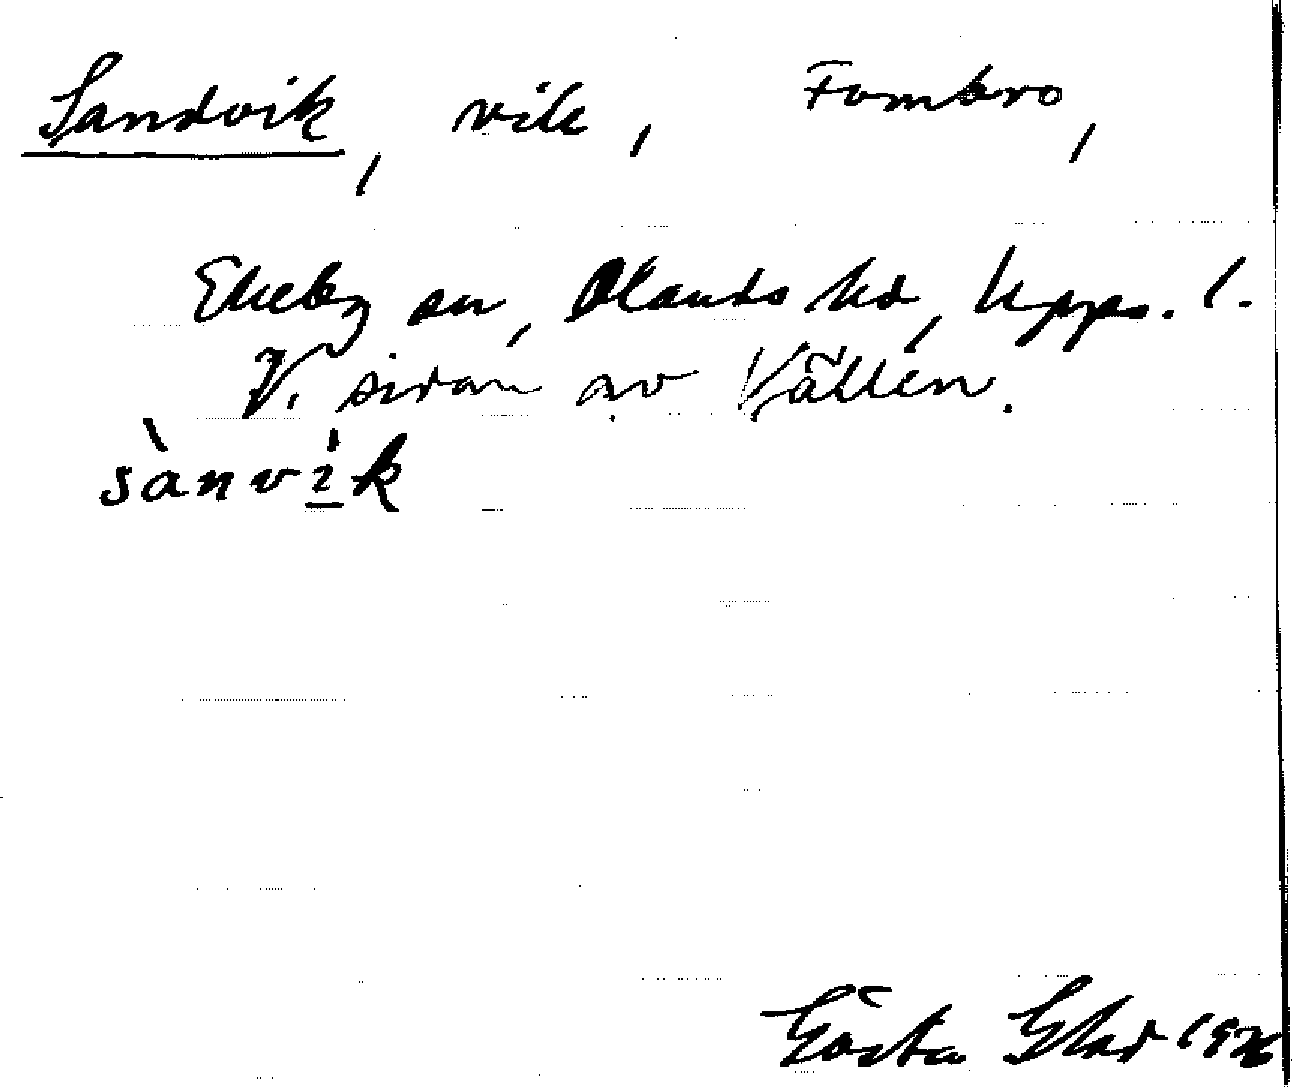 Sandvik, vik, Fombro,
Ekeby sn, Olands hd, Upps. l.
V. sidan av Vällen.
sànvi̠k
Gösta Glad